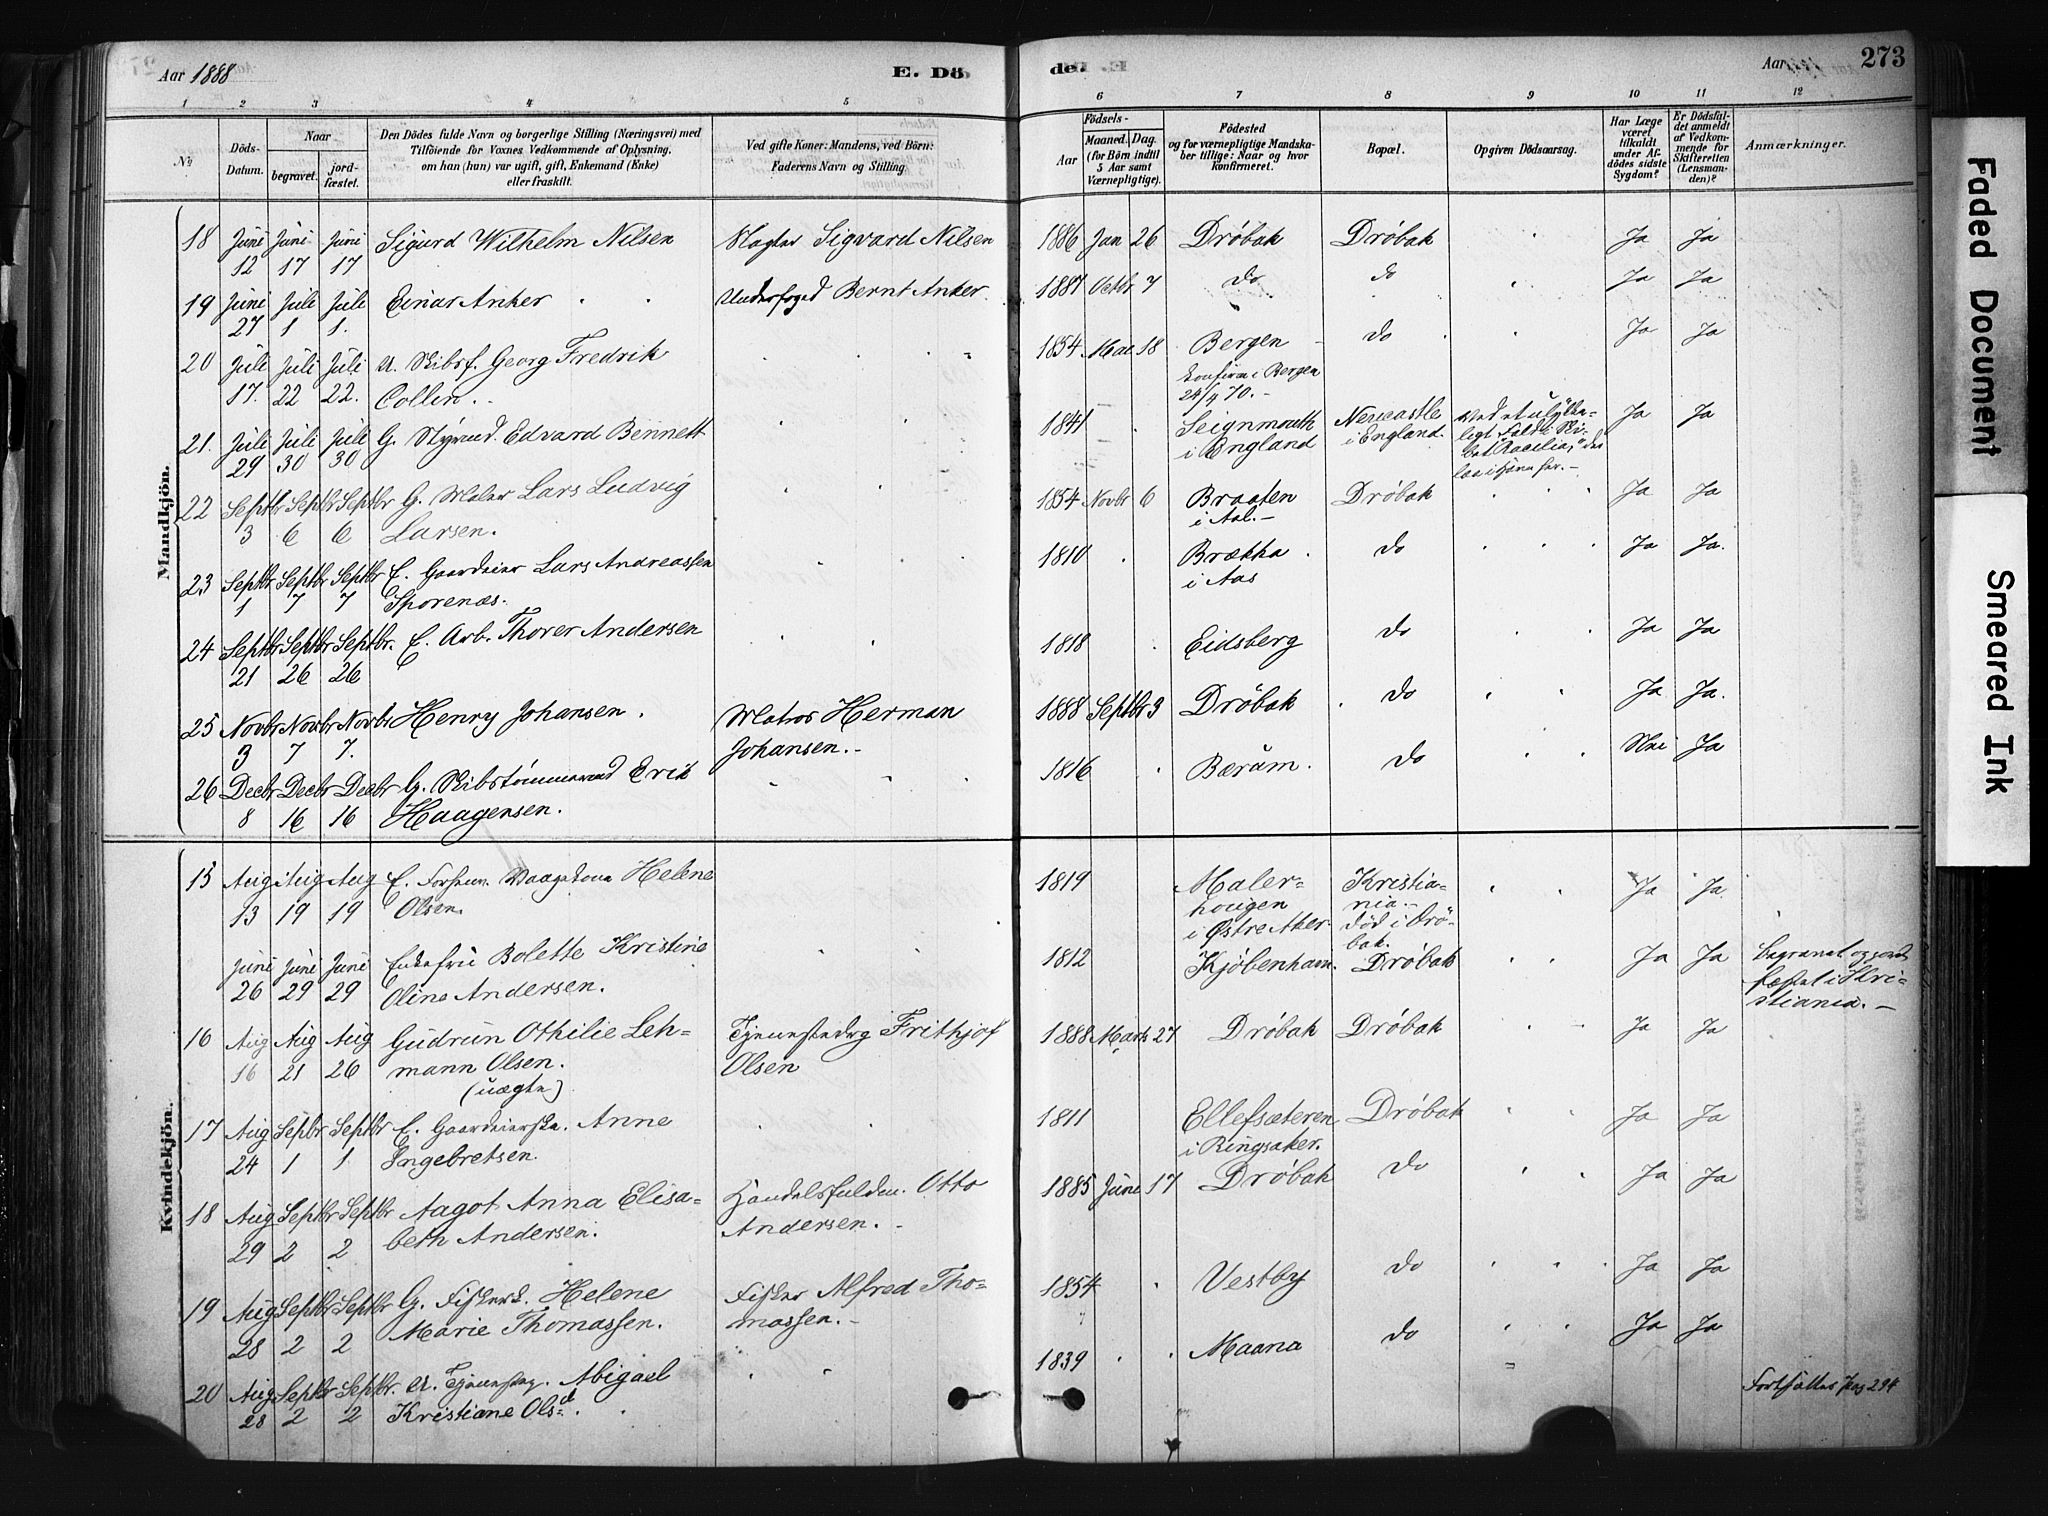 Aar 1888
E. Dö
de.
Aar
273
1 2 3 4 5 6 7 8 9 10 11 12
No
Döds-
Datum.
Naar
begravet.
jord-
fæstet.
Den Dödes fulde Navn og borgerlige Stilling (Næringsvei) med
Tilföiende for Voxnes Vedkommende af Oplysning,
om han (hun) var ugift, gift, Enkemand (Enke)
eller fraskilt.
Ved gifte Koner: Mandens, ved Börn:
Faderens Navn og Stilling.
Födsels-
Aar
Maaned. Dag.
(for Börn indtil
5 Aar samt
Værnepligtige).
Födested
og for værnepligtige Mandska-
ber tillige: Naar og hvor
konfirmeret.
Bopæl.
Opgiven Dödsaarsag.
Har Læge
været
tilkaldt
under Af-
dödes sidste
Sygdom?
Er Dödsfal-
det anmeldt
af Vedkom-
mende for
Skifteretten
(Lensman-
den)?
Anmærkninger.
Mandkjön.
18 Juni Juni Juni Sigurd Wilhelm Nilsen Slagter Sigvard Nilsen 1886 Jan 26 Drøbak Drøbak Ja Ja
12 17 17
19 Juni Juli Juli Einar Anker Underfoged Bernt Anker. 1887 Octbr 7 do do Ja Ja
27 1 1.
20 Juli Juli Juli U. Skibsf. Georg Fredrik 1854 Mai 18 Bergen do Ja Ja
17. 22 22. Collin. konfirm i Bergen
24/4 70.
21. Juli Juli Juli G. Styrmd. Edvard Bennett 1841 Seignmouth Newcastle Ved et ulykke- Ja Ja
29 30 30 i England i England. ligt Fald i Ski-
bet "Cacilia," der
laa i havn her.
22 Septbr Septbr Septbr G. Maler Lars Ludvig 1854 Novbr 6 Braaten Drøbak Ja Ja
3 6 6 Larsen. i Aal.
23 Septbr Septbr Septbr E. Gaardeier Lars Andreassen 1810 Brækka do Ja Ja.
1 7 7 Sporenæs. i Aas
24 Septbr Septbr Septbr. E. Arb. Thorer Andersen 1818 Eidsberg do Ja Ja
21 26 26
25 Novbr Novbr Novbr Henry Johansen. Matros Herman 1888 Septbr 3 Drøbak do Ja Ja.
3 7 7. Johansen.
26 Decbr Decbr Decbr G. Skibstømmermd Erik 1816 Bærum. do Nei Ja
8 16 16 Haagensen.
Kvindekjön.
15 Aug Aug Aug E. Vaagekone Helene 1819 Maler- Kristia- Ja Ja
13 19 19 Olsen. hougen nia.
i Østre Aker død i Drø-
bak.
Juni Juni Juni Enkefru Bolette Kristine 1812 Kjøbenhavn. Drøbak Ja Ja begravet og jord-
26 29 29 Oline Andersen. fæstet i Kri-
stiania.
16 Aug Aug Aug Gudrun Othilie Leh- Tjenestedrg Frithjof 1888 Marts 27 Drøbak Drøbak Ja Ja
16 21 26 mann Olsen. Olsen
(uægte)
17 Aug Sepbr Septbr E. Gaardeierske. Anne 1811 Ellefsæteren Drøbak Ja Ja
24 1 1 Engebretsen. i Ringsaker.
18 Aug Septbr Septbr Aagot Anna Elisa- Handelsfuldm. Otto 1885 Juni 17 Drøbak do Ja Ja
29 2 2 beth Andersen. Andersen.
19 Aug Septbr Septbr G. Fiskersk. Helene Fisker Alfred Tho- 1854 Vestby do Ja Ja
28 2 2 Marie Thomassen. massen.
20 Aug Septbr Septbr. U. Tjenestep. Abigael 1839 Maana do Ja Ja
28 2 2 Kristiane Olsd.
Fortsættes pag 294
Faded Document
Smeared Ink